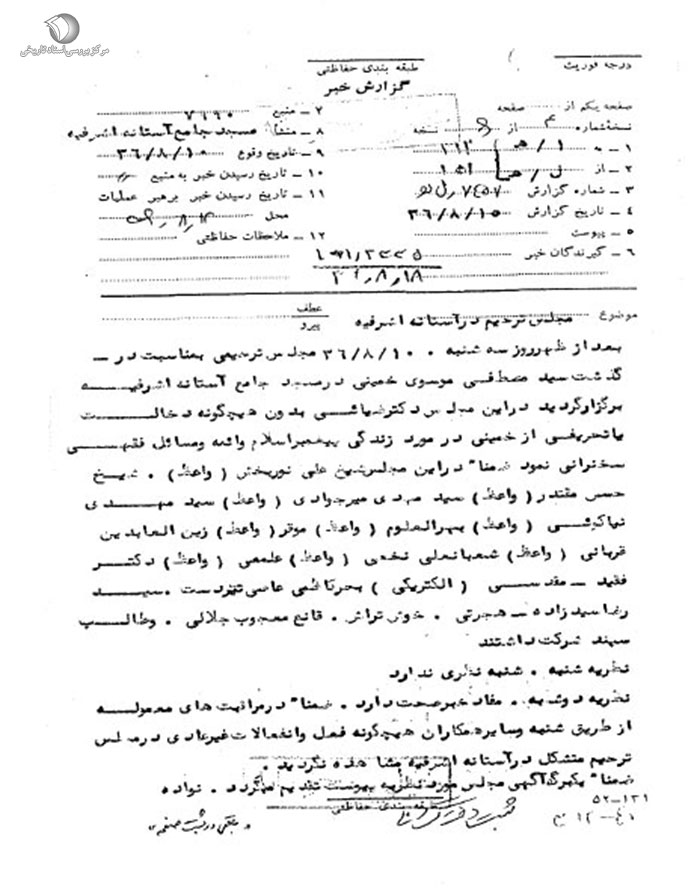 مرکز بررسی اسناد تاریخی
درجه فوریت
طبقه بندی حفاظتی
گزارش خبر
صفحه یکم از صفحه
نسخه شماره ۴ از نسخه
۱ ـ به ۱/هـ ۳۱۲
۲ ـ از
۳ ـ شماره گزارش ۷۴۵۷
۴ ـ تاریخ گزارش ۳۶/۸/۱۵
۵ ـ پیوست
۶ ـ گیرندگان خبر
۷ ـ منبع ۷۱۹۰
۸ ـ منشأ مسجد جامع آستانه اشرفیه
۹ ـ تاریخ وقوع ۳۶/۸/۱۰
۱۰ ـ تاریخ رسیدن خبر به منبع
۱۱ ـ تاریخ رسیدن خبر برهبر عملیات
محل
۱۲ ـ ملاحظات حفاظتی
موضوع مجلس ترحیم درآستانه اشرفیه
عطف
پیرو
بعد از ظهرروز سه شنبه . ۳۶/۸/۱۰ مجلس ترحیمی بمناسبت در ـ
گذشت سید مصطفی موسوی خمینی درمسجد جامع آستانه اشرفیه
برگزارگردید دراین مجلس دکترضیائی بدون هیچگونه دخالت
یاتعریفی از خمینی در مورد زندگی پیغمبراسلام وائمه ومسائل فقهی
سخنرانی نمود ضمنا" دراین مجلس شیخ علی نوربخش ( واعظ ) . شیخ
حسن مقتدر ( واعظ ) سید مهدی میرجوادی ( واعظ ) سید مهدی
نیاکوئی ( واعظ ) بحرالعلوم ( واعظ ) موقر ( واعظ ) زین العابدین
قربانی ( واعظ ) شعبانعلی نخعی ( واعظ ) ( واعظ ) دکتر
فقید ـ مقدسی ( الکتریکی ) بحرکاظمی عاصی تندرست . سید
رضا سیدزاده ـ هجرتی . خوش تراش . قانع محجوب جلالی . وطالب
سپند شرکت داشتند
نظریه شنبه . شنبه نظری ندارد
نظریه دوشنبه . مفاد خبرصحت دارد . ضمنا" درمراقبت های معموله
از طریق شنبه وسایرهمکاران هیچگونه فعل وانفعالات غیرعادی درمجلس
ترحیم متشکل درآستانه اشرفیه مشاهده نگردید .
ضمنا" یکبرگ آگهی مجلس مورد نظریه بپیوست تقدیم میگردد . نواده
طبقه بندی حفاظتی
۵۲-۱۳۱